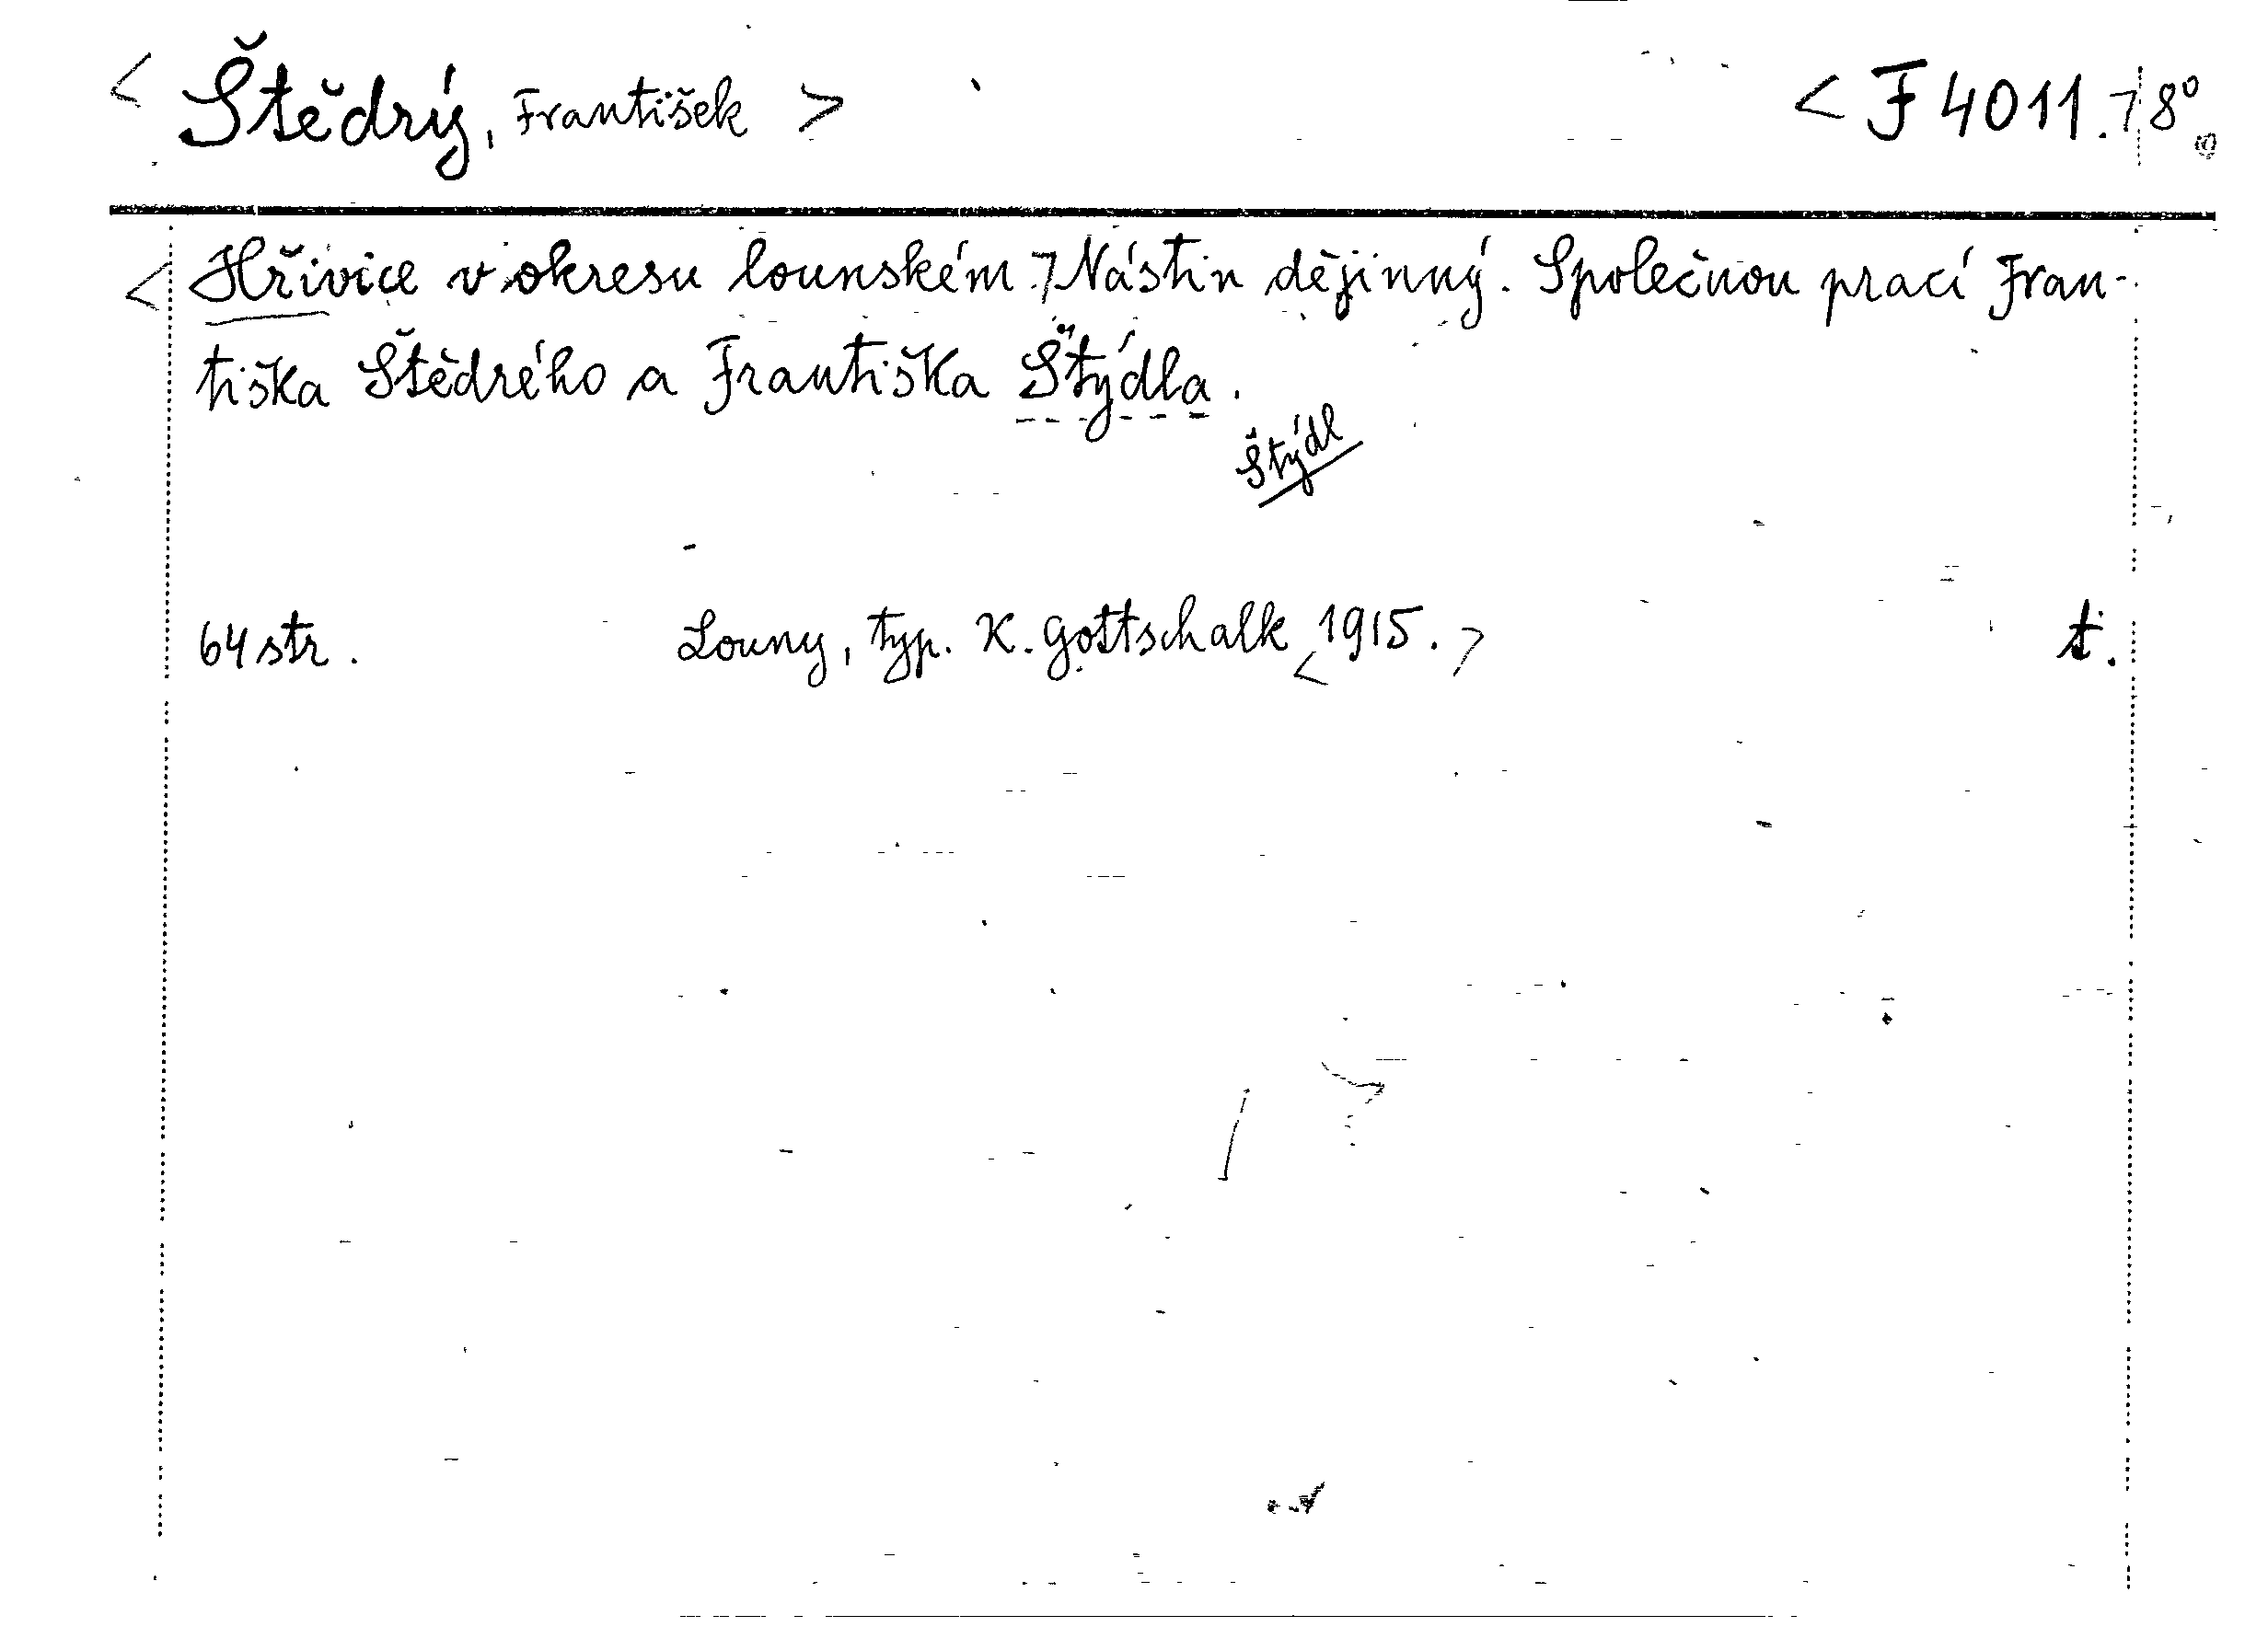 < Štědrý, František > < F 4011.> 8°
< Hřivice v okresu lounském.> Nástin dějinný. Společnou prací Fran-
tiška Štědrého a Františka Štýdla.
Štýdl
64 str. Louny, typ. K. Gottschalk <1915.> t.